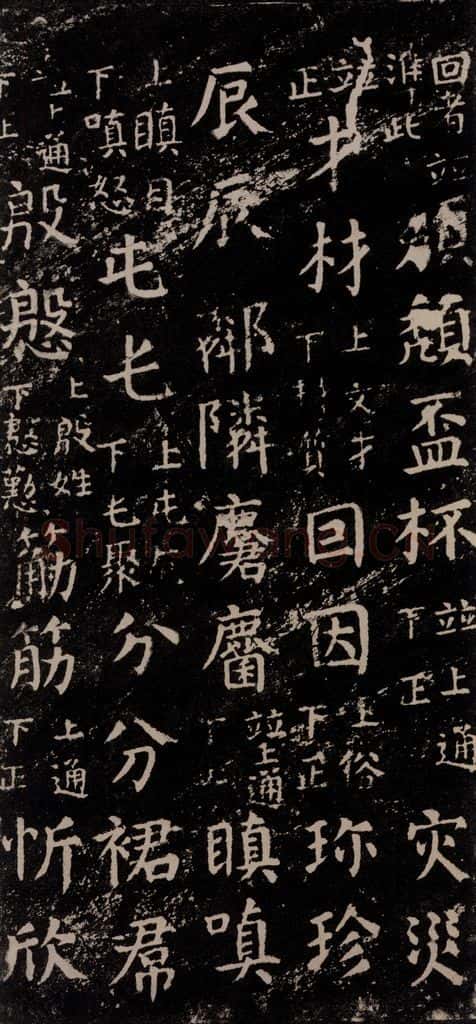 回者並準此 頽 盃杯 並上通下正 灾災
並正 才材 上文才下材質 囙因 上俗下正 珎珍
辰辰 鄰隣 麏麕 並上通下正 瞋嗔
上瞋目下嗔怒 屯 上屯下聚 分分 裙帬
上通下正 殷慇 上殷姓下慇懃 筋筋 上通下正 忻欣
Shufawang.cn